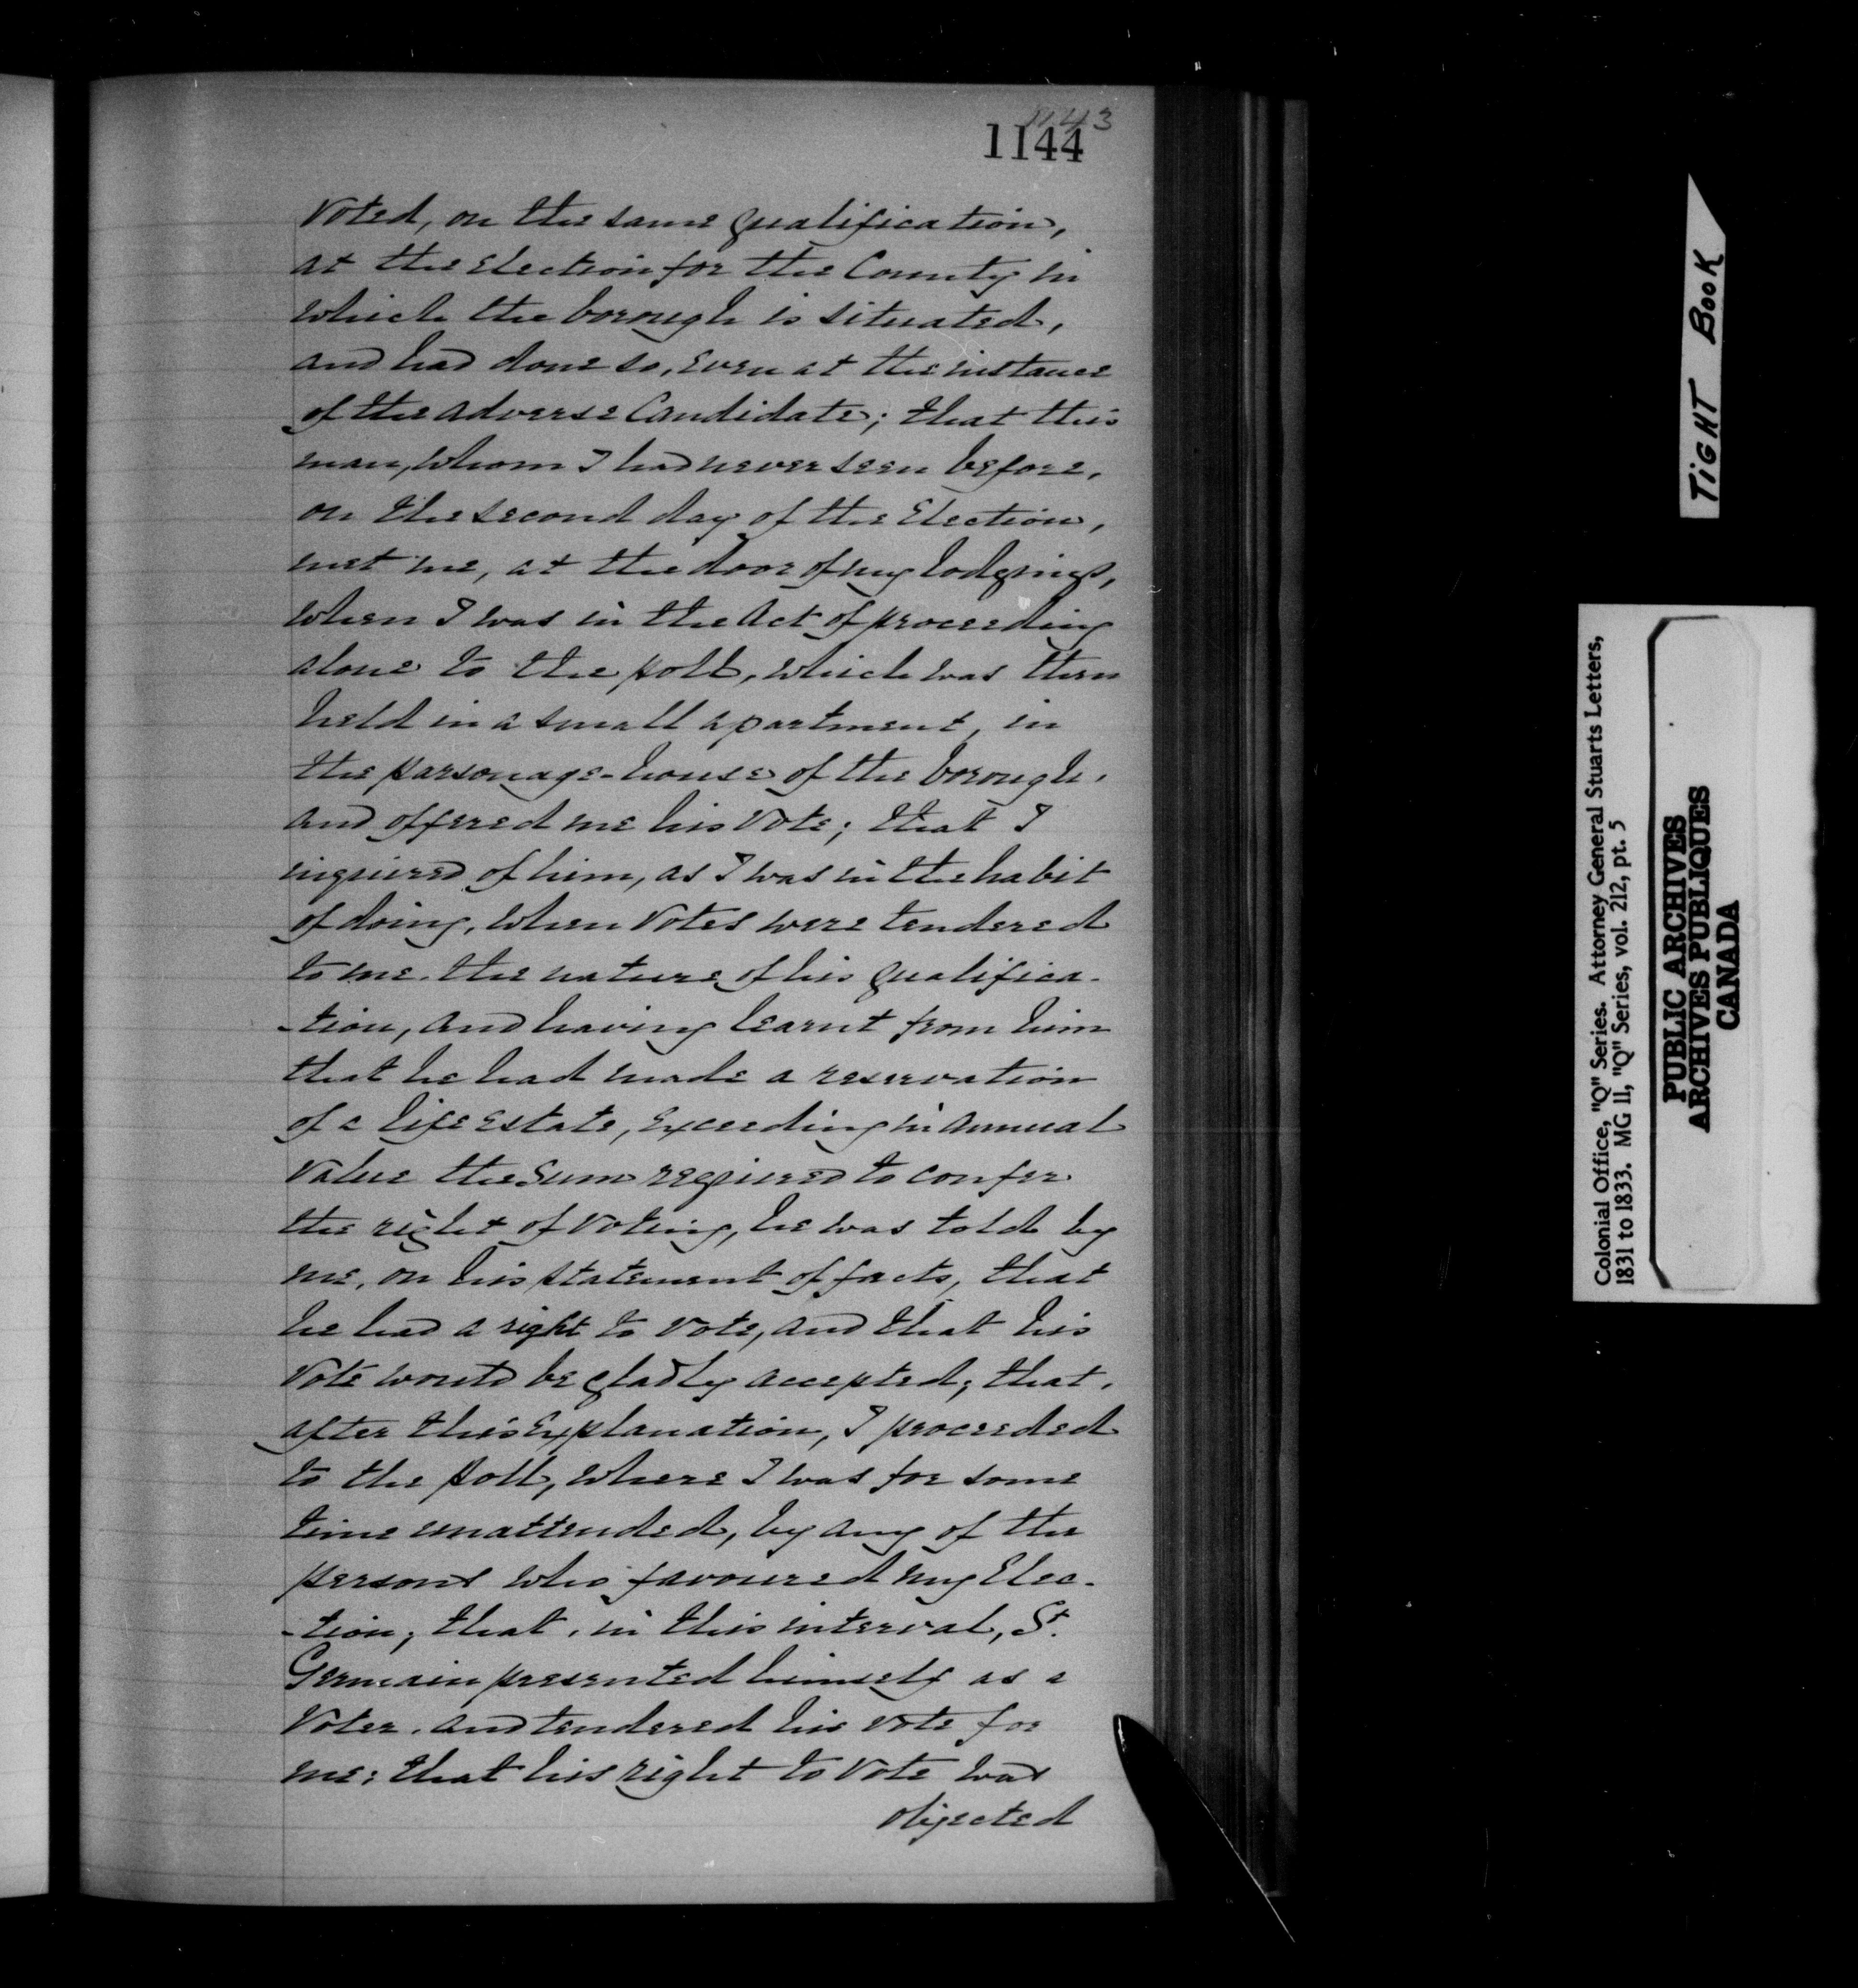 1143
1144
voted, on the same qualification,
at the election for the County in
which the borough is situated,
and had done so, even at the instance
of the adverse Candidate; that this
man, whom I had never seen before,
on the second day of the Election,
met me, at the door of my lodgings,
when I was in the Act of proceeding
alone to the poll, which was then
held in a small apartment, in
the parsonage-house of the borough,
and offered me his vote; that I
inquired of him, as I was in the habit
of doing, when votes were tendered
to me, the nature of his qualifica-
-tion, and having learnt from him
that he had made a reservation
of a life estate, exceeding in annual
value the sum required to confer
the right of voting, he was told by
me, on his statement of facts, that
he had a right to vote, and that his
vote would be gladly accepted; that,
after this explanation, I proceeded
to the poll, where I was for some
time unattended, by any of the
persons who favoured my Elec-
-tion; that, in this interval, St.
Germain presented himself as a
Voter, and tendered his vote for
me; that his right to vote was
objected
TIGHT BOOK
Colonial Office, "Q" Series. Attorney General Stuarts Letters,
1831 to 1833. MG 11, "Q" Series, vol. 212, pt. 5
PUBLIC ARCHIVES
ARCHIVES PUBLIQUES
CANADA